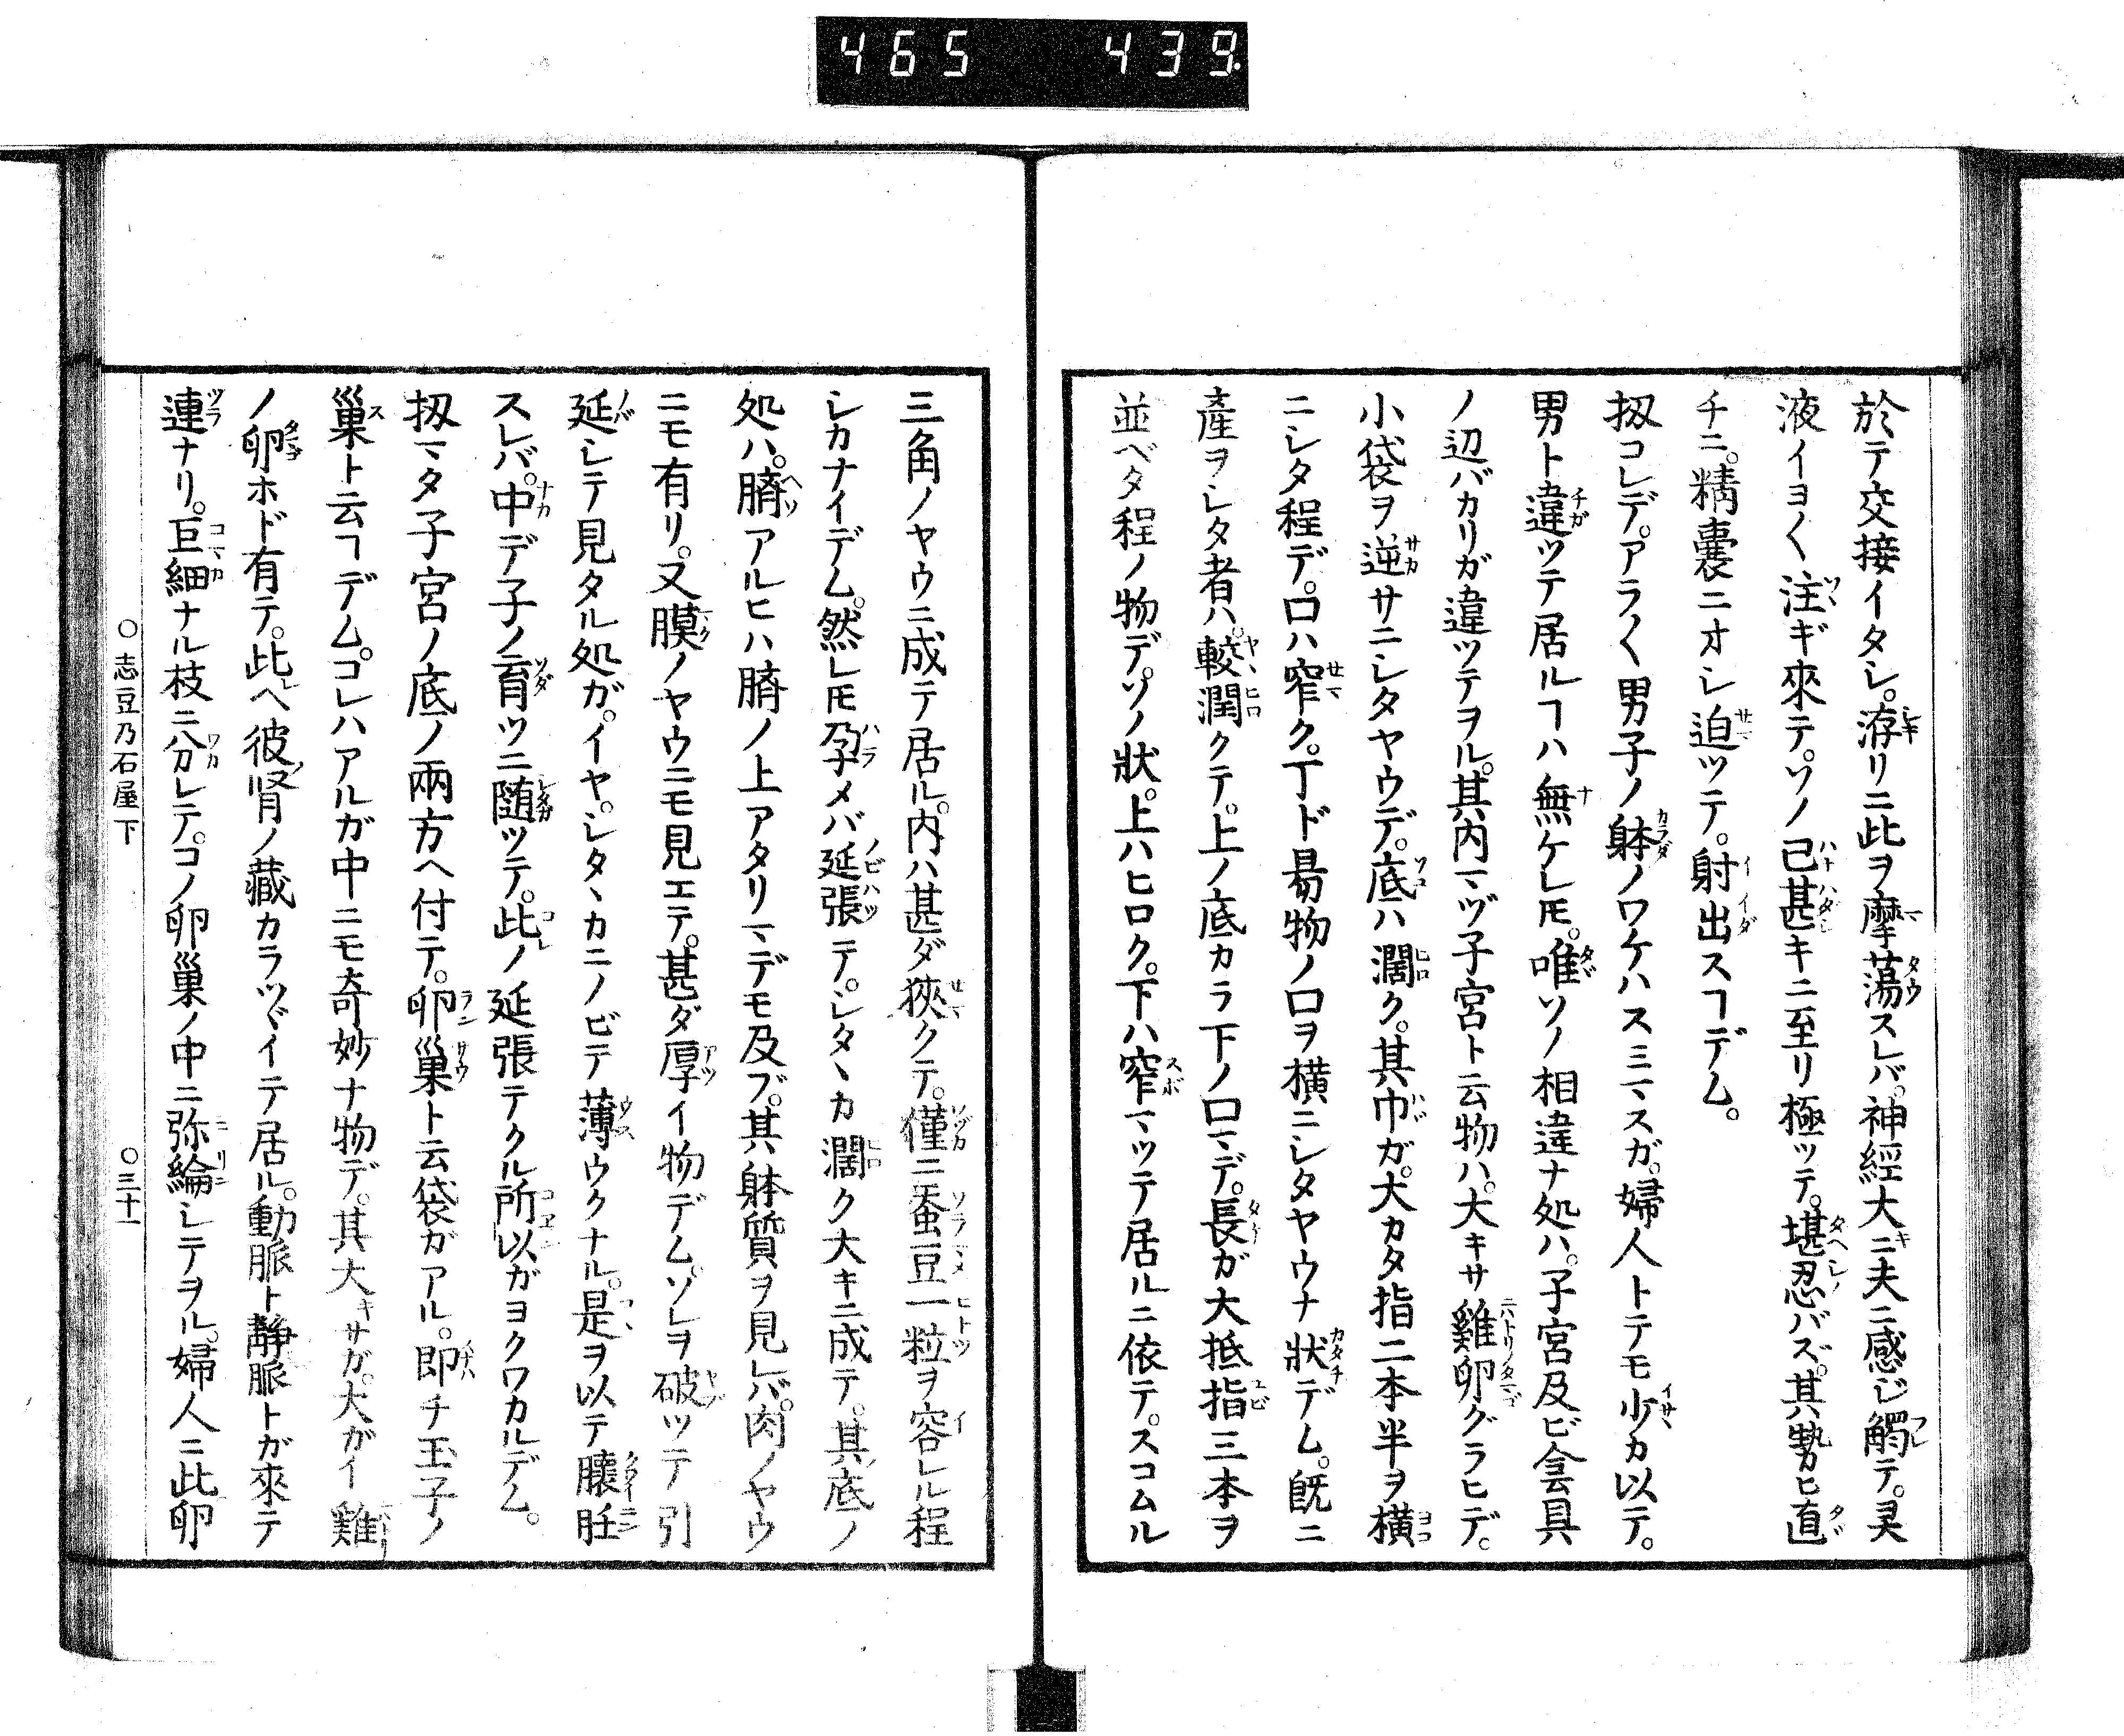 465 439.
於テ交接イタシ。洊リニ此ヲ摩蕩スレバ。神經大ニ夫ニ感ジ觸テ。灵
液イヨ〱注ギ來テ。ソノ已甚キニ至リ極ッテ。堪忍バズ。其勢ヒ直
チニ。精囊ニオシ迫ッテ。射出スヿデム。
扨コレデ。アラ〱男子ノ躰ノワケハスミマスガ。婦人トテモ少カ以テ。
男ト違ッテ居ルヿハ無ケレ𪜈。唯ソノ相違ナ処ハ。子宮及ビ会具
ノ辺バカリガ違ッテヲル。其内マヅ子宮ト云物ハ。大キサ雞卵グラヒデ。
小袋ヲ逆サニシタヤウデ。底ハ濶ク。其巾ガ。大カタ指二本半ヲ横
ニシタ程デ。口ハ窄ク。丁ド昜物ノ口ヲ横ニシタヤウナ狀デム。既ニ
產ヲシタ者ハ。較潤クテ。上ノ底カラ下ノ口マデ。長ガ大抵指三本ヲ
並ベタ程ノ物デ。ソノ狀。上ハヒロク。下ハ窄マッテ居ルニ依テ。スコムル
三角ノヤウニ成テ居ル。内ハ甚ダ狹クテ。僅ニ蚕豆一粒ヲ容レル程
シカナイデム。然レ𪜈孕メバ延張テ。シタヽカ濶ク大キニ成テ。其底ノ
処ハ。臍アルヒハ臍ノ上アタリマデモ及ブ。其躰質ヲ見レバ。肉ノヤウ
ニモ有リ。又膜ノヤウニモ見エテ。甚ダ厚イ物デム。ソレヲ破ッテ引
延シテ見タル処ガ。イヤ。シタヽカニノビテ薄ウクナル。是ヲ以テ懷妊
スレバ。中デ子ノ育ツニ随ッテ。此ノ延張テクル所以ガヨクワカルデム。
扨マタ子宮ノ底ノ兩方ヘ付テ。卵巢ト云袋ガアル。即チ玉子ノ
巢ト云ヿデム。コレハアルガ中ニモ奇妙ナ物デ。其大キサガ。大ガイ雞
ノ卵ホド有テ。此ヘ彼腎ノ藏カラツヾイテ居ル。動脈ト靜脈トガ來テ
連ナリ。巨細ナル枝ニ分レテ。コノ卵巢ノ中ニ弥綸シテヲル。婦人ニ此卵
○志豆乃石屋下 ○三十一